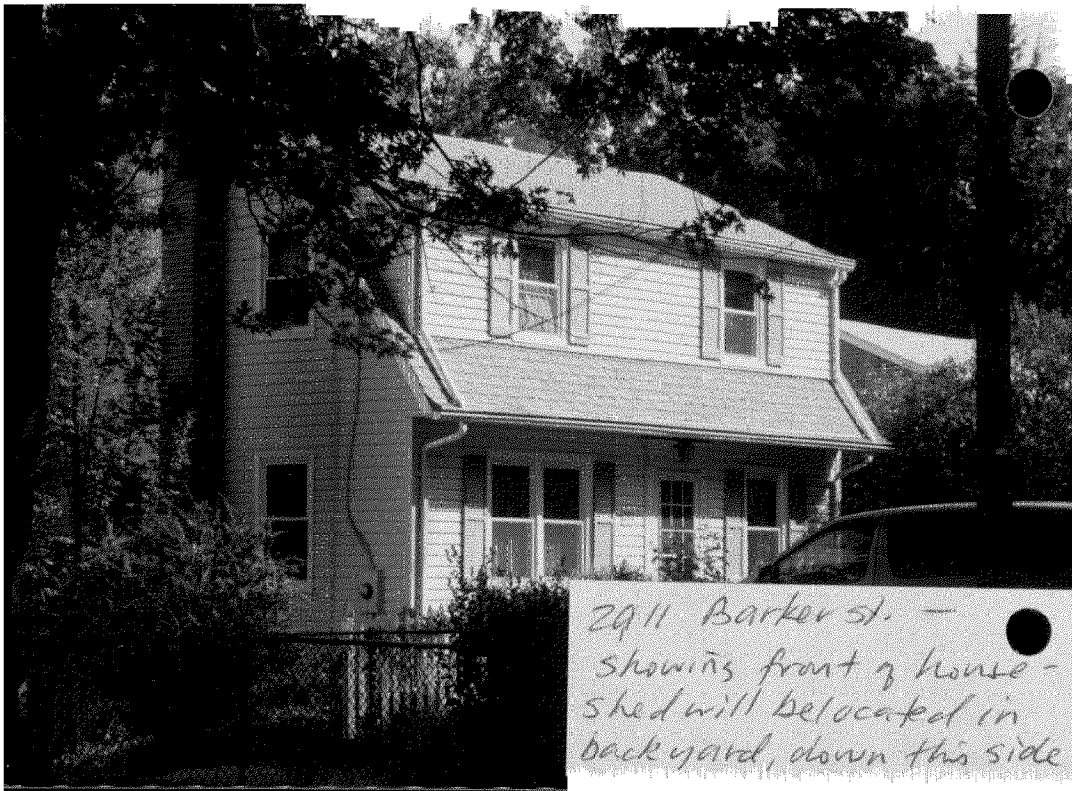 2911 Barker st. —
showing front of house -
shed will be located in
back yard, down this side